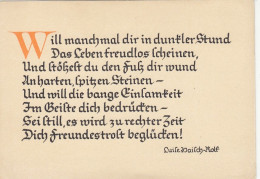 Will manchmal dir in dunkler Stund
Das Leben freudlos scheinen,
Und stößest du den Fuß dir wund
An harten, spitzen Steinen –
Und will die bange Einsamkeit
Im Geiste dich bedrücken –
Sei still, es wird zu rechter Zeit
Dich Freundestrost beglücken!
Luise